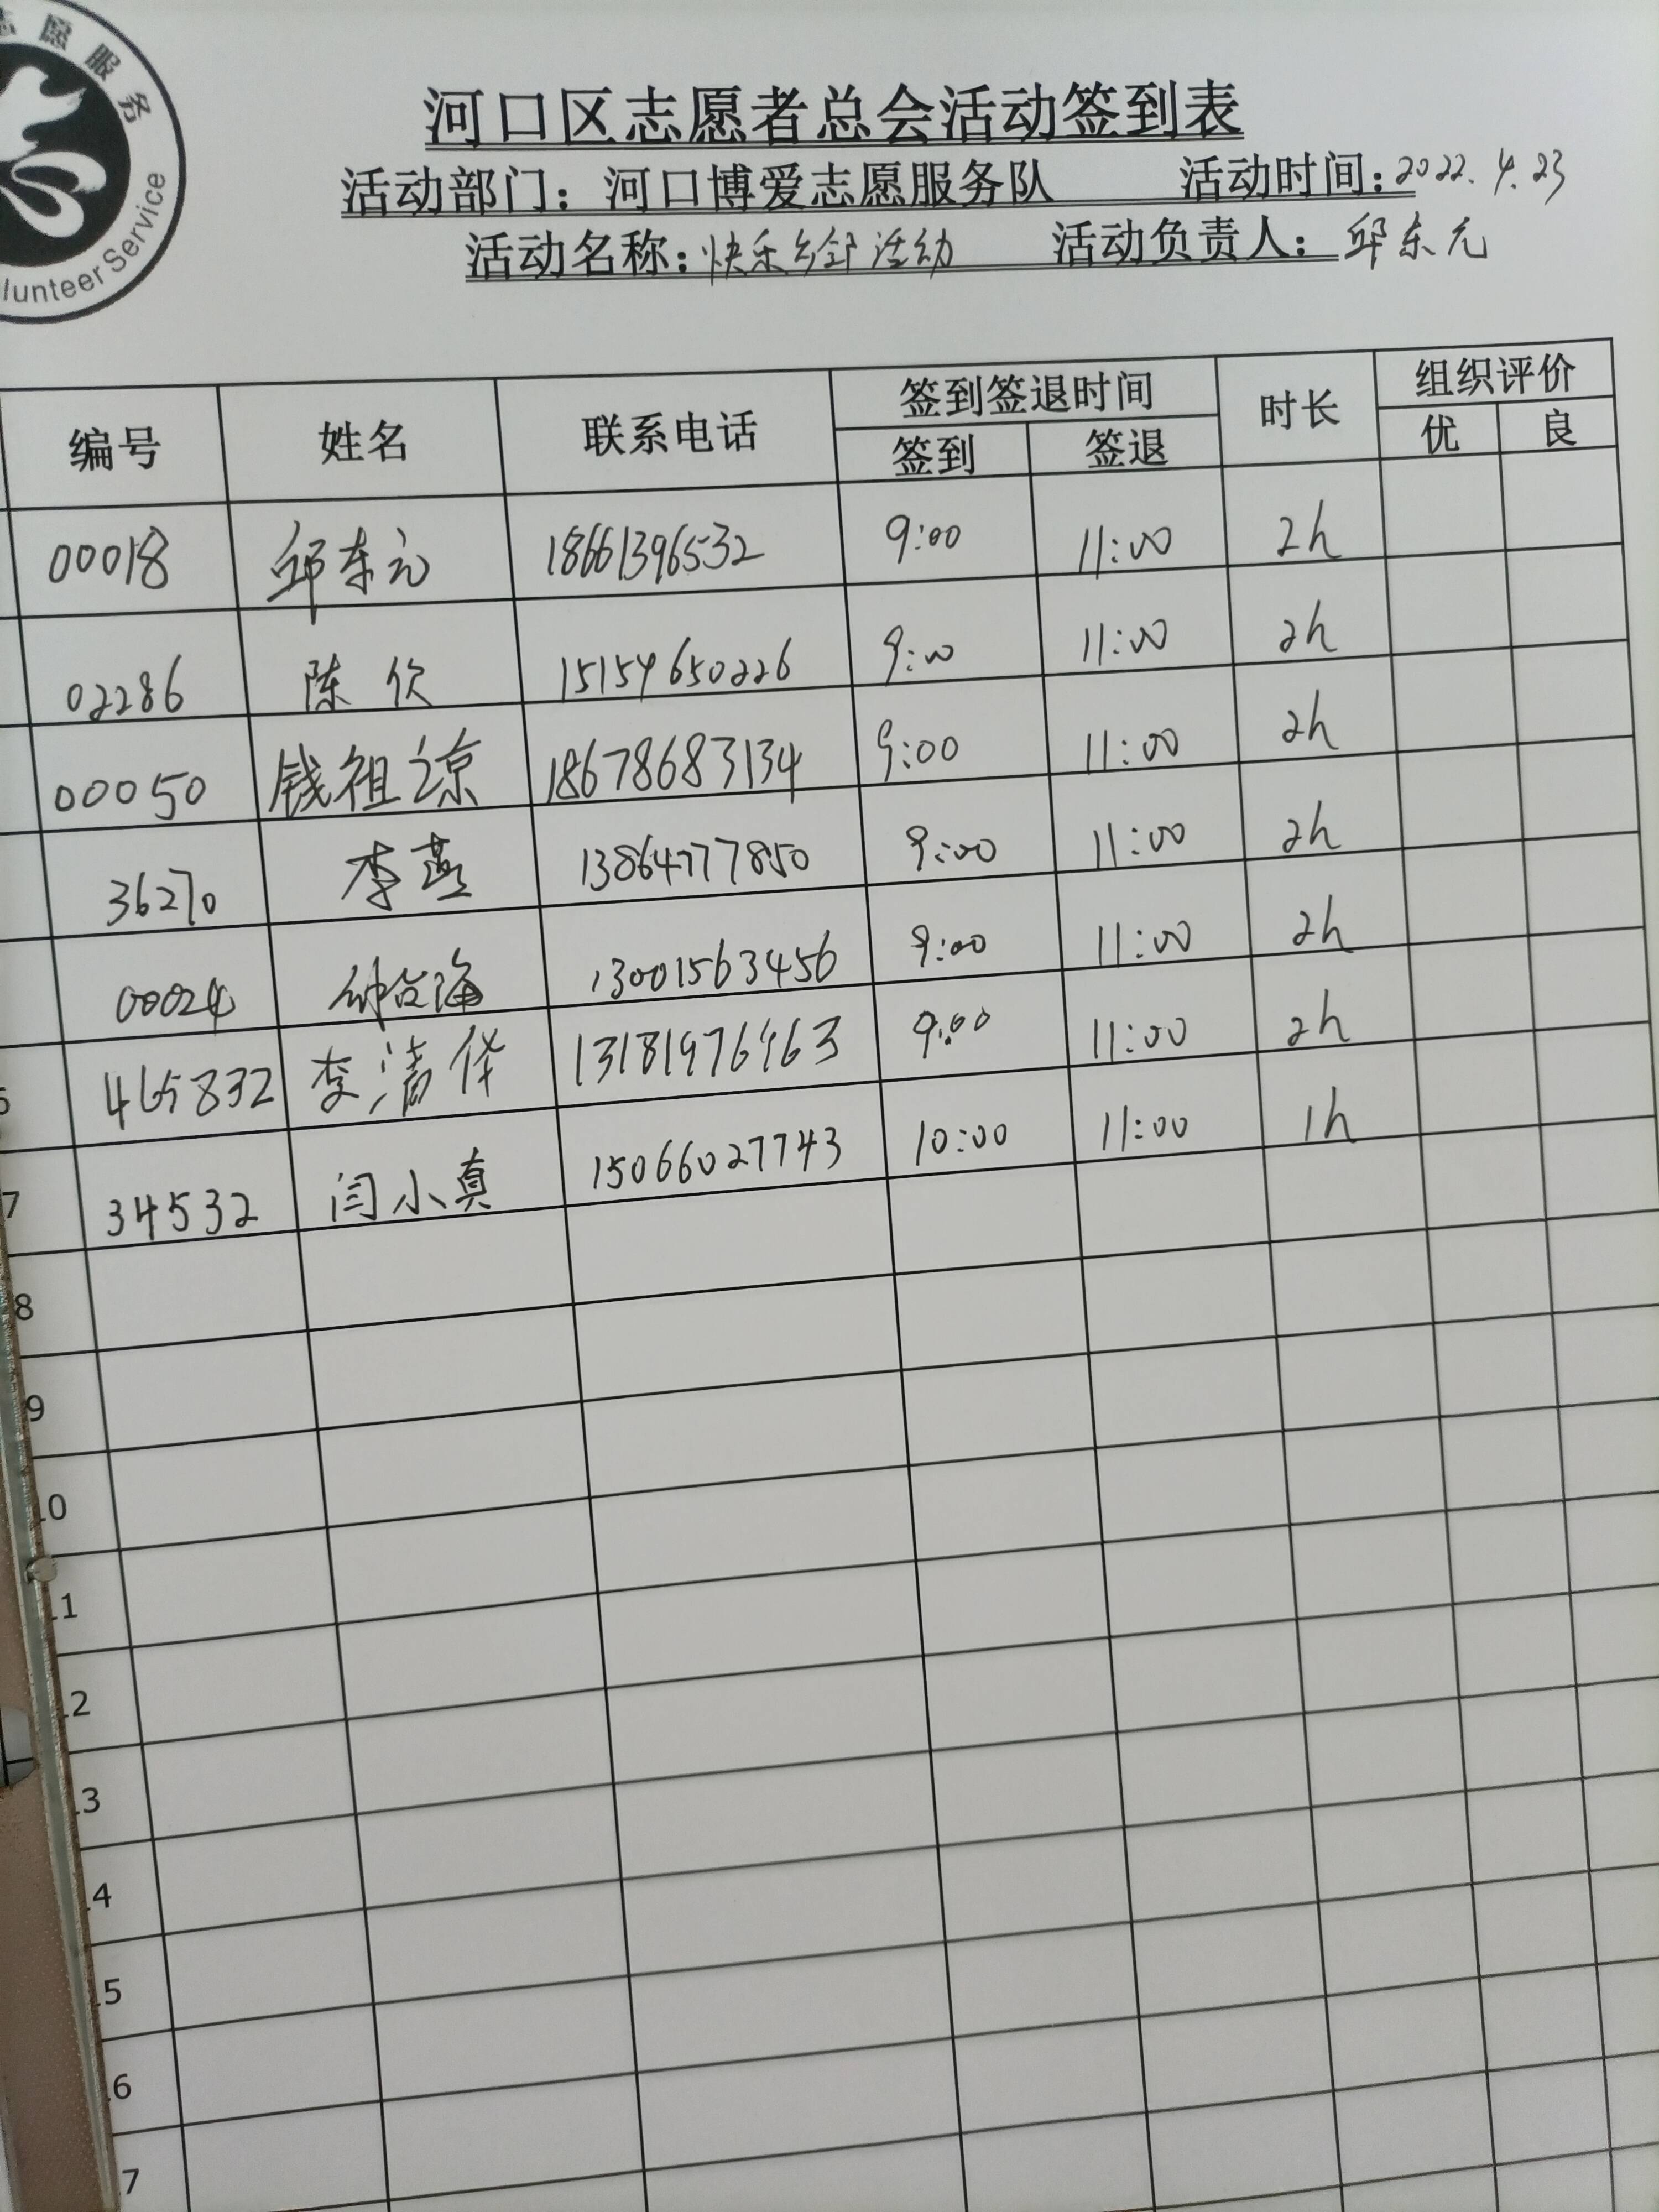 志愿服务
lunteer Service
河口区志愿者总会活动签到表
活动部门：河口博爱志愿服务队 活动时间：2022.4.23
活动名称：快乐乡邻活动 活动负责人：邱东元
编号 姓名 联系电话 签到签退时间 时长 组织评价
签到 签退 优 良
00018 邱东元 18661396532 9:00 11:00 2h
02286 陈欣 15154650226 9:00 11:00 2h
00050 钱祖琼 18678683134 9:00 11:00 2h
36270 李燕 13864777850 9:00 11:00 2h
00024 13001563456 9:00 11:00 2h
465832 李清华 13181976963 9:00 11:00 2h
7 34532 闫小真 15066027743 10:00 11:00 1h
8
9
10
11
12
13
14
15
16
17